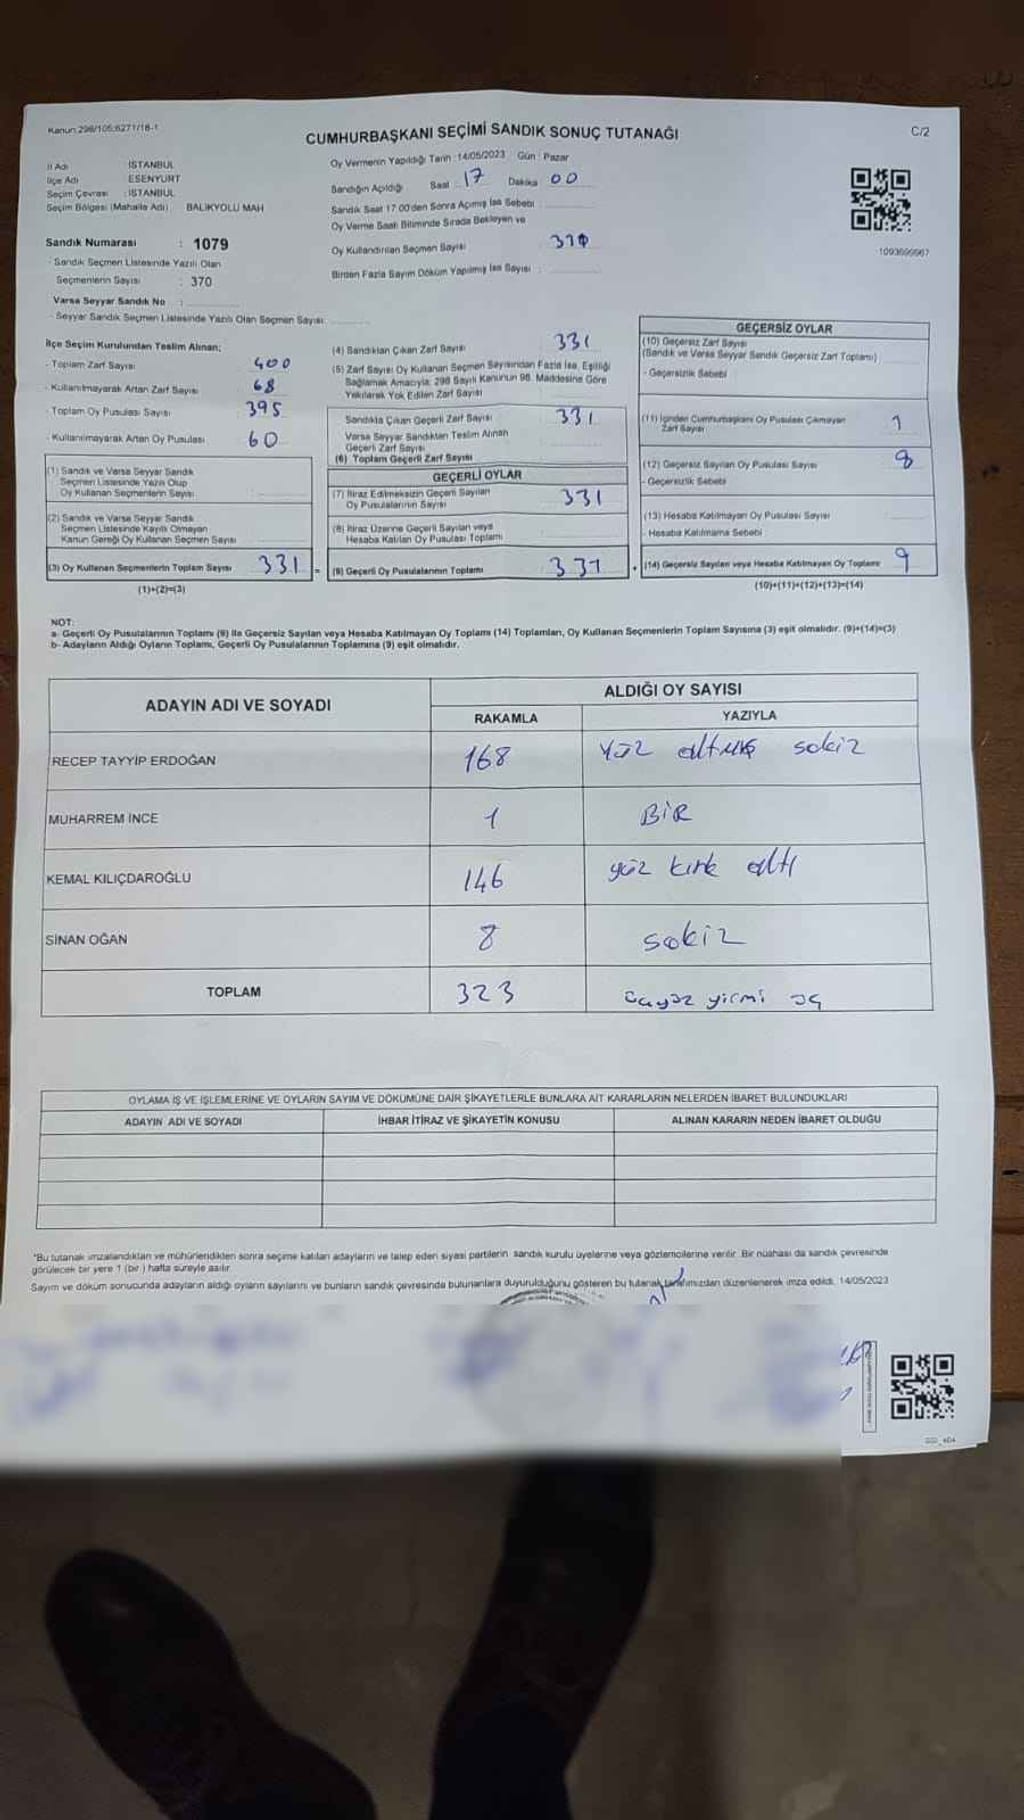 Kanun 298/105;6271/18-1
C/2
CUMHURBAŞKANI SEÇİMİ SANDIK SONUÇ TUTANAĞI
İl Adı : İSTANBUL
İlçe Adı : ESENYURT
Seçim Çevresi : İSTANBUL
Seçim Bölgesi (Mahalle Adı) BALIKYOLU MAH
Sandık Numarası : 1079
Sandık Seçmen Listesinde Yazılı Olan
Seçmenlerin Sayısı : 370
Varsa Seyyar Sandık No :
Seyyar Sandık Seçmen Listesinde Yazılı Olan Seçmen Sayısı:
Oy Vermenin Yapıldığı Tarih :14/05/2023 Gün : Pazar
Sandığın Açıldığı Saat 17 Dakika 00
Sandık Saat 17:00'den Sonra Açılmış İse Sebebi
Oy Verme Saati Bitiminde Sırada Bekleyen ve
Oy Kullandırılan Seçmen Sayısı 370
Birden Fazla Sayım Döküm Yapılmış İse Sayısı :
1093699967
İlçe Seçim Kurulundan Teslim Alınan;
- Toplam Zarf Sayısı 400
- Kullanılmayarak Artan Zarf Sayısı 68
- Toplam Oy Pusulası Sayısı 395
- Kullanılmayarak Artan Oy Pusulası 60
(1) Sandık ve Varsa Seyyar Sandık
Seçmen Listesinde Yazılı Olup
Oy Kullanan Seçmenlerin Sayısı
(2) Sandık ve Varsa Seyyar Sandık
Seçmen Listesinde Kayıtlı Olmayan
Kanun Gereği Oy Kullanan Seçmen Sayısı
(3) Oy Kullanan Seçmenlerin Toplam Sayısı 331 =
(1)+(2)=(3)
(4) Sandıktan Çıkan Zarf Sayısı 331
(5) Zarf Sayısı Oy Kullanan Seçmen Sayısından Fazla İse, Eşitliği
Sağlamak Amacıyla; 298 Sayılı Kanunun 98. Maddesine Göre
Yakılarak Yok Edilen Zarf Sayısı
Sandıkta Çıkan Geçerli Zarf Sayısı 331
Varsa Seyyar Sandıktan Teslim Alınan
Geçerli Zarf Sayısı
(6) Toplam Geçerli Zarf Sayısı
GEÇERLİ OYLAR
(7) İtiraz Edilmeksizin Geçerli Sayılan
Oy Pusulalarının Sayısı 331
(8) İtiraz Üzerine Geçerli Sayılan veya
Hesaba Katılan Oy Pusulası Toplamı
(9) Geçerli Oy Pusulalarının Toplamı 331 +
GEÇERSİZ OYLAR
(10) Geçersiz Zarf Sayısı
(Sandık ve Varsa Seyyar Sandık Geçersiz Zarf Toplamı)
- Geçersizlik Sebebi
(11) İçinden Cumhurbaşkanı Oy Pusulası Çıkmayan
Zarf Sayısı 1
(12) Geçersiz Sayılan Oy Pusulası Sayısı 8
- Geçersizlik Sebebi
(13) Hesaba Katılmayan Oy Pusulası Sayısı
- Hesaba Katılmama Sebebi
(14) Geçersiz Sayılan veya Hesaba Katılmayan Oy Toplamı 9
(10)+(11)+(12)+(13)=(14)
NOT:
a- Geçerli Oy Pusulalarının Toplamı (9) ile Geçersiz Sayılan veya Hesaba Katılmayan Oy Toplamı (14) Toplamları, Oy Kullanan Seçmenlerin Toplam Sayısına (3) eşit olmalıdır. (9)+(14)=(3)
b- Adayların Aldığı Oyların Toplamı, Geçerli Oy Pusulalarının Toplamına (9) eşit olmalıdır.
ADAYIN ADI VE SOYADI
ALDIĞI OY SAYISI
RAKAMLA YAZIYLA
RECEP TAYYİP ERDOĞAN 168 yüz altmış sekiz
MUHARREM İNCE 1 BİR
KEMAL KILIÇDAROĞLU 146 yüz kırk altı
SİNAN OĞAN 8 sekiz
TOPLAM 323 üçyüz yirmi üç
OYLAMA İŞ VE İŞLEMLERİNE VE OYLARIN SAYIM VE DÖKÜMÜNE DAİR ŞİKAYETLERLE BUNLARA AİT KARARLARIN NELERDEN İBARET BULUNDUKLARI
ADAYIN ADI VE SOYADI İHBAR İTİRAZ VE ŞİKAYETİN KONUSU ALINAN KARARIN NEDEN İBARET OLDUĞU
*Bu tutanak imzalandıktan ve mühürlendikten sonra seçime katılan adayların ve talep eden siyasi partilerin sandık kurulu üyelerine veya gözlemcilerine verilir. Bir nüshası da sandık çevresinde
görülecek bir yere 1 (bir ) hafta süreyle asılır.
Sayım ve döküm sonucunda adayların aldığı oyların sayılarını ve bunların sandık çevresinde bulunanlara duyurulduğunu gösteren bu tutanak tarafımızdan düzenlenerek imza edildi. 14/05/2023